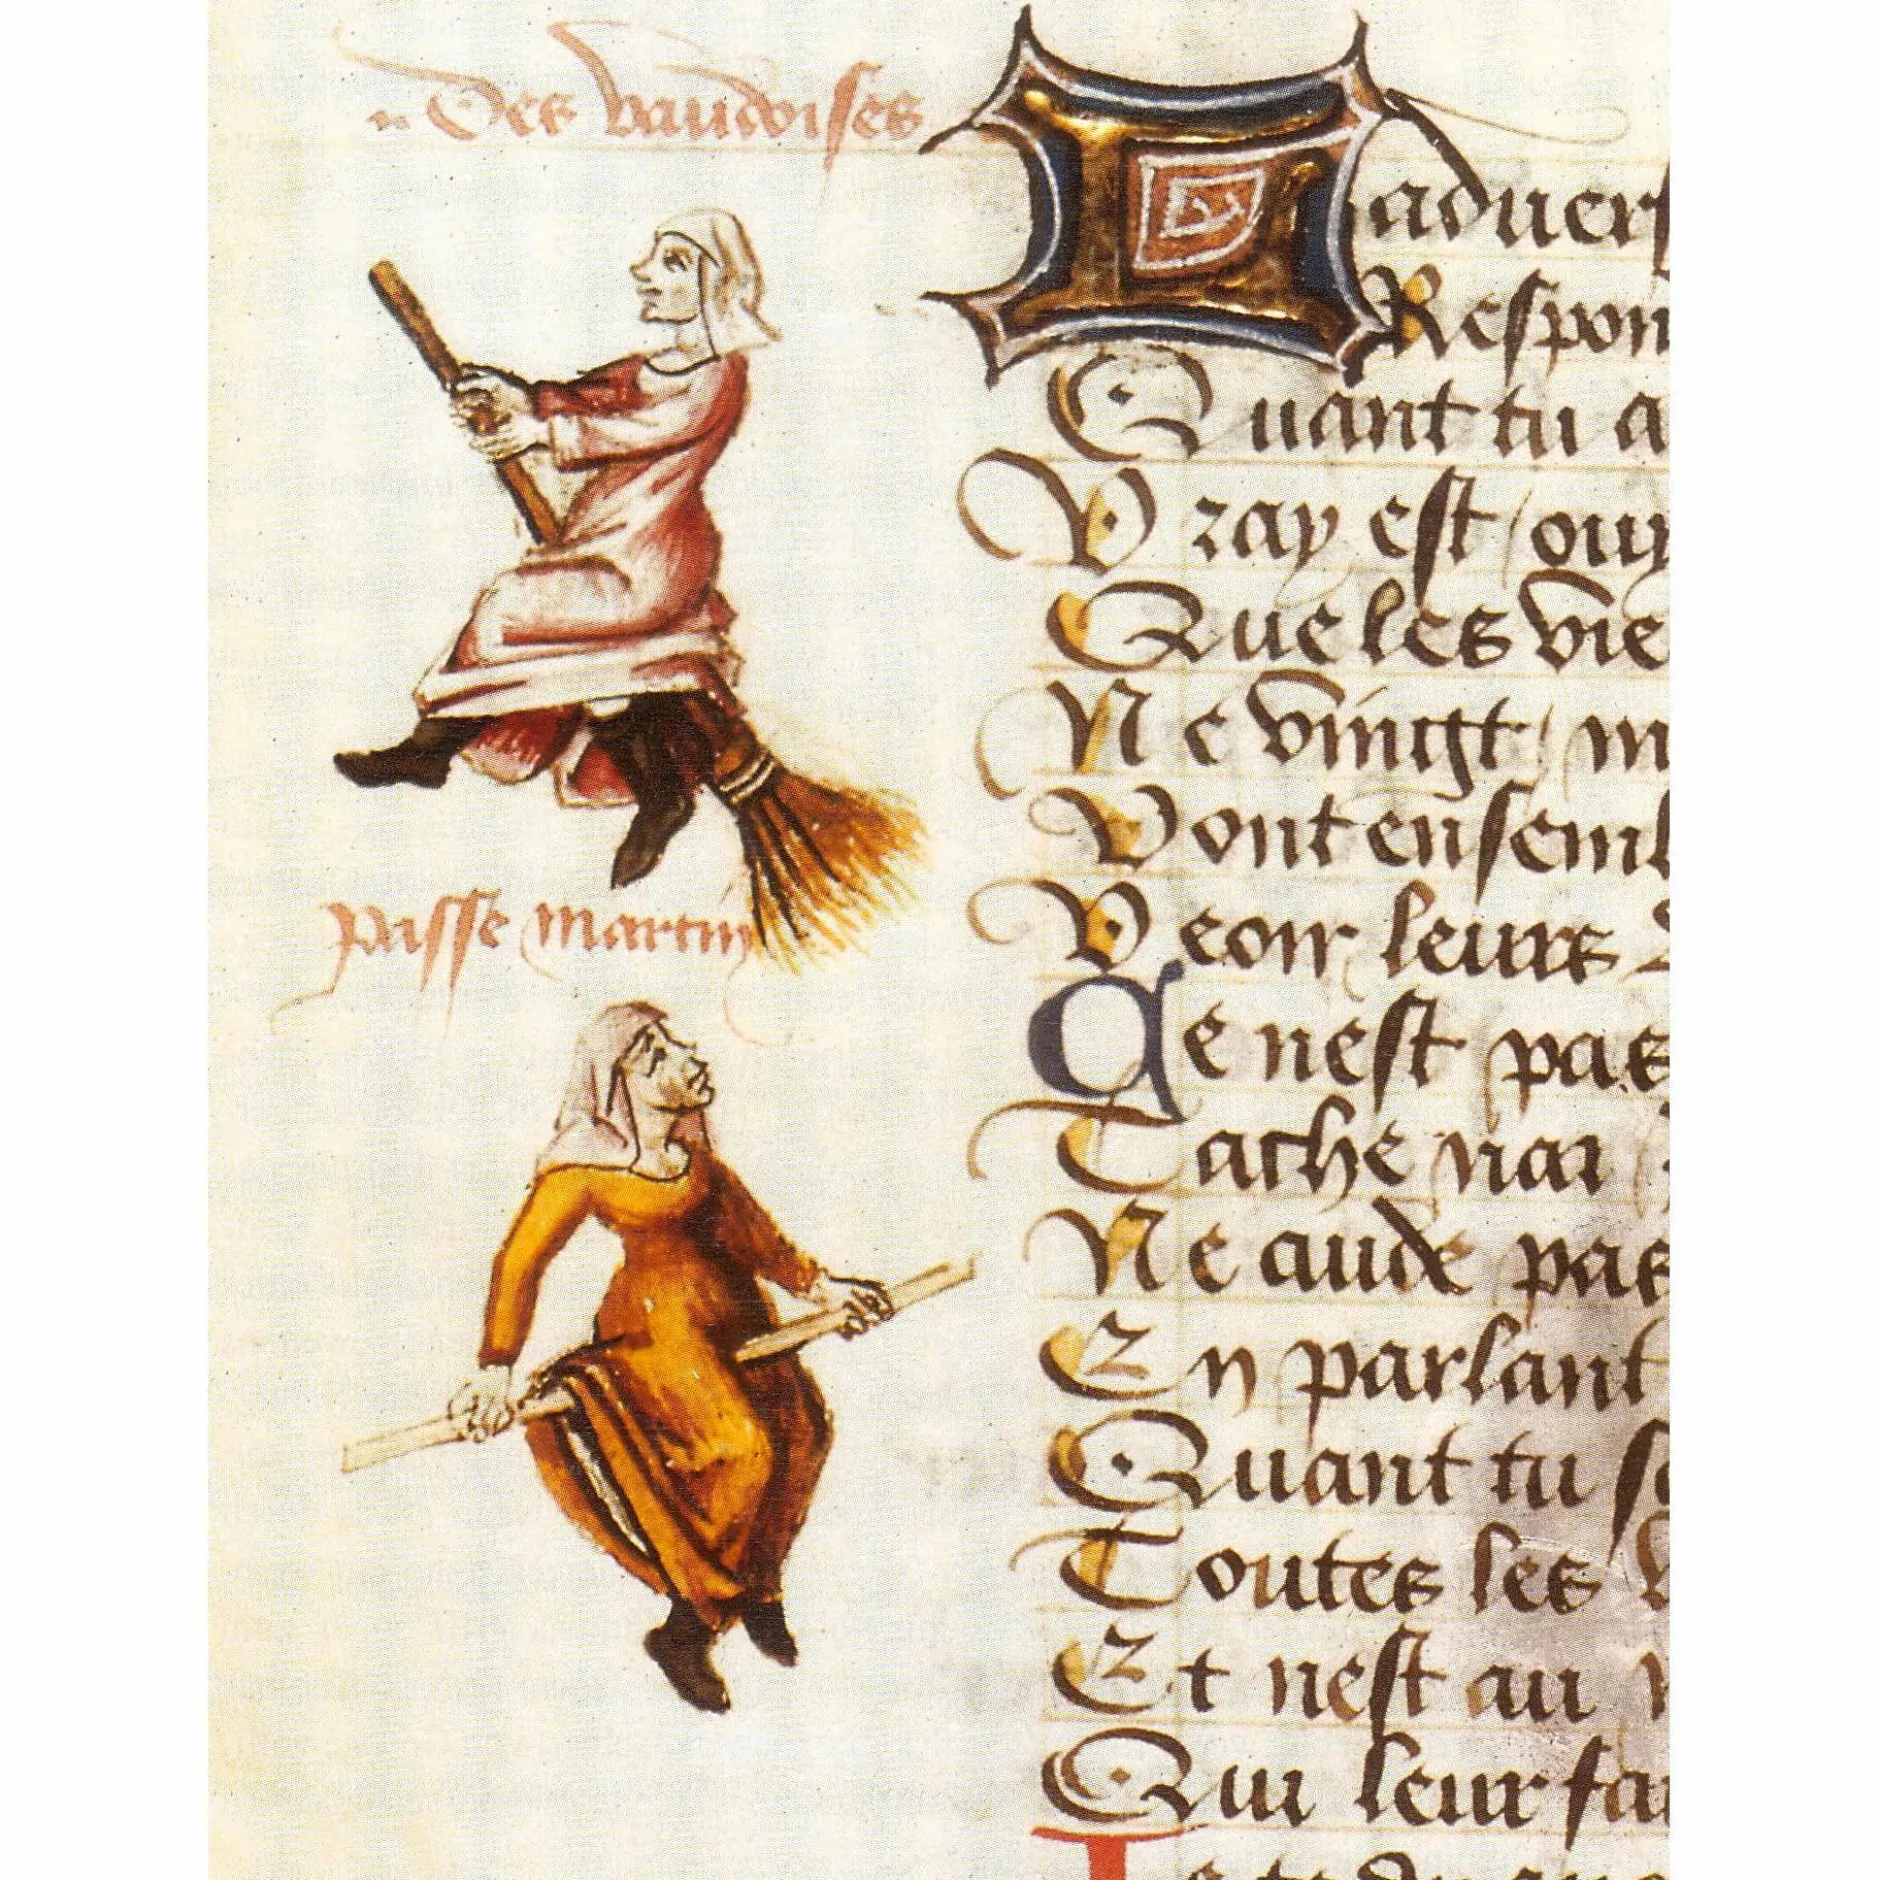 Des vaudoises
passe martin
L aduers
Respon
Quant tu a
Vray est ouy
Que les vie
Ne vingt m
Vont ensembl
Veoir leurs
Ce nest pas
Tache nai
Ne cuide pas
En parlant
Quant tu so
Toutes les v
Et nest au
Qui leur fai